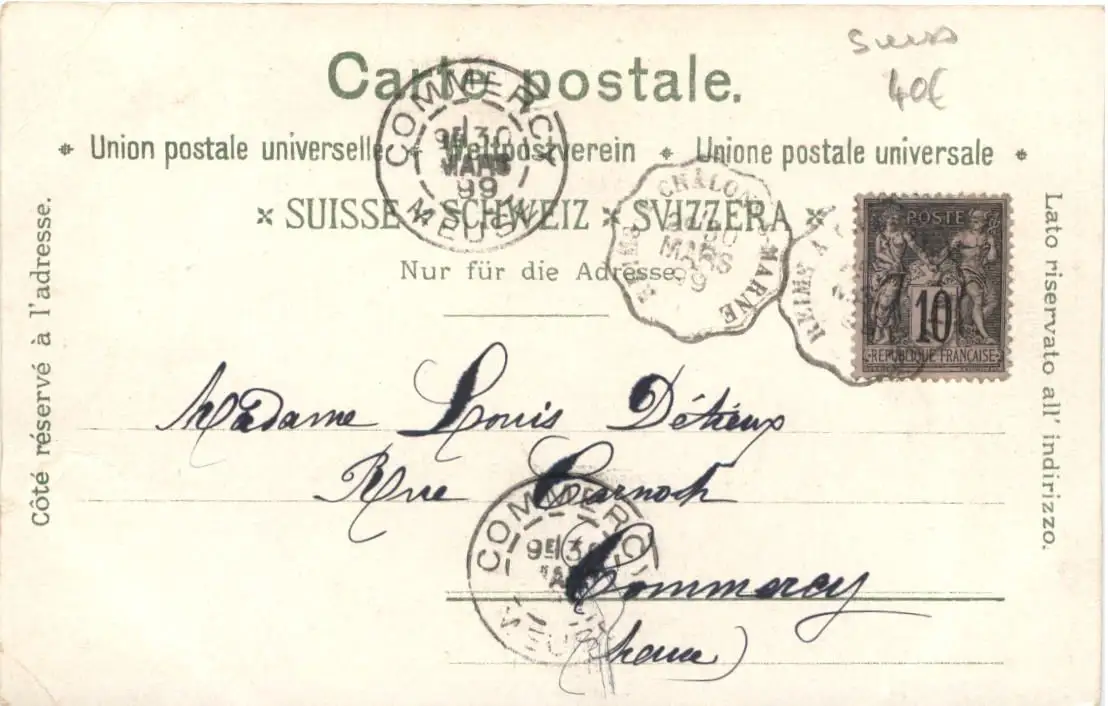 Suiss
40€
Carte postale.
* Union postale universelle * Weltpostverein * Unione postale universale *
× SUISSE × SCHWEIZ × SVIZZERA ×
Nur für die Adresse.
Côté réservé à l'adresse.
Lato riservato all' indirizzo.
COMMERCY
9E 30
MARS
99
MEUSE
REIMS CHALONS-MARNE
30
MARS
99
REIMS A
POSTE
10
REPUBLIQUE FRANÇAISE
Madame Louis Détieux
Rue Carnot
Commercy
(Meuse)
COMMERCY
9E 30
MEUSE